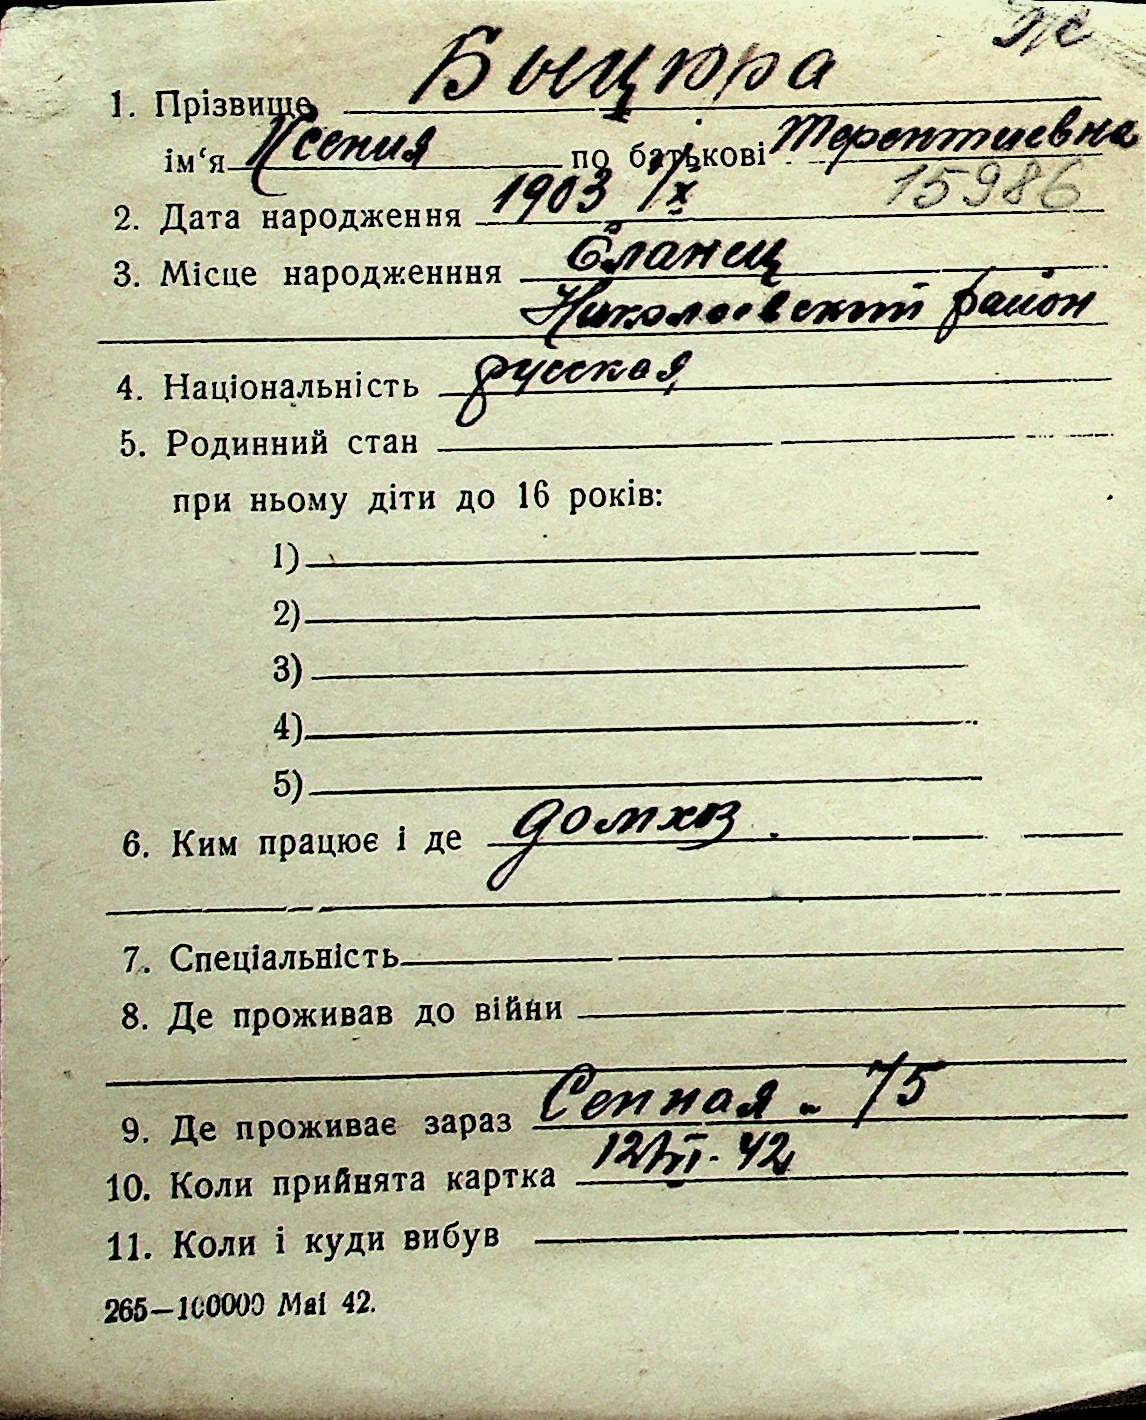 Ж
1. Прізвище Быцюра
ім‘я Ксения по батькові Терентиевна
2. Дата народження 1903 1/X 15986
3. Місце народженння Еланец
Николаевский район
4. Національність русская
5. Родинний стан
при ньому діти до 16 років:
1)
2)
3)
4)
5)
6. Ким працює і де домхоз.
7. Спеціальність
8. Де проживав до війни
9. Де проживає зараз Сенная - 75
10. Коли прийнята картка 12/VI-42
11. Коли і куди вибув
265—100000 Маі 42.